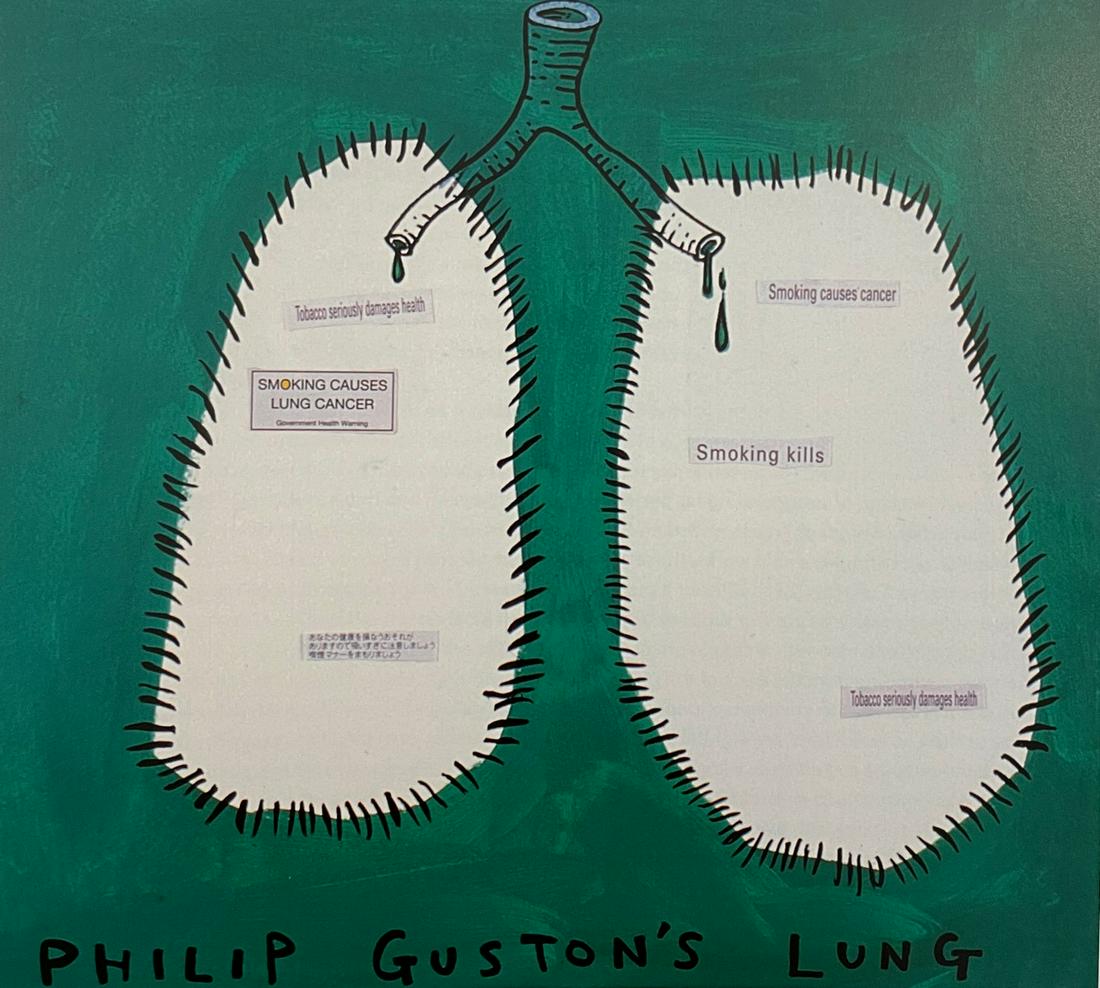 Tobacco seriously damages health
SMOKING CAUSES
LUNG CANCER
Government Health Warning
あなたの健康を損なうおそれが
ありますので吸いすぎに注意しましょう
喫煙マナーをまもりましょう
Smoking causes cancer
Smoking kills
Tobacco seriously damages health
PHILIP GUSTON'S LUNG